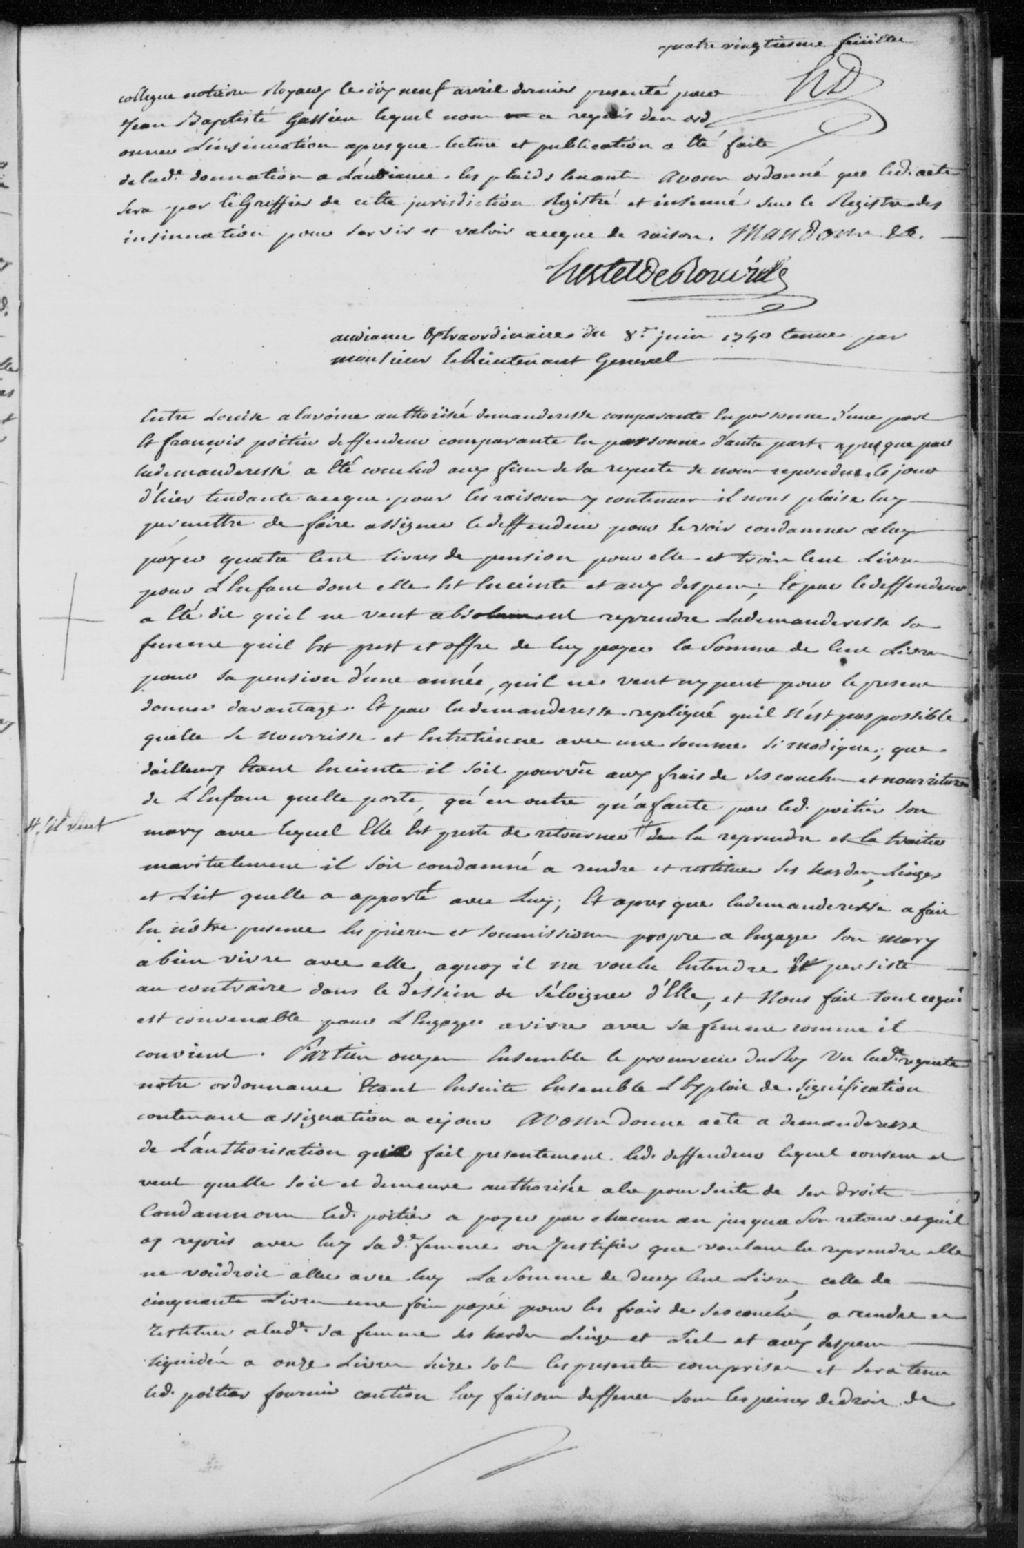 quatre vingtiesme feüillet
HD
collegue notaire Royaux le dix neuf avril dernier presenté pour
Jean Baptiste Gassien lequel nous a requis d'en ord
onner L'insinuation apresque lecture et publication a Eté faite
de lad.e donnation a L'audiance les plaids tenant avons ordonné que led. acte
sera par le Greffier de cette jurisdiction Registré et insinué sur le Registre des
insinuation pour servir et valoir ceque de raison. Mandons &c.
hertel de Rouville
audiance Extraordinaire du 8.e juin 1740 tenue par
monsieur le Lieutenant General
Entre Louise alavoine authorisée demanderesse comparante En personne d'une part
Et françois poitier deffendeur comparante En personne d'autre part, apresque par
la demanderesse a Eté conclud aux fins de sa requete de nous repondue le jour
d'hier tendante aceque pour les raisons y contenues il nous plaise luy
permettre de faire assigner le deffendeur pour se voir condamner a luy
payer quatre Cent livres de pension pour elle et trois Cent Livres
pour L'Enfant dont elle Est Enceinte et aux depens; Et par le deffendeur
a Eté dit qu'il ne veut absolument reprendre La demanderesse sa
femme quil Est prest et offre de luy payer la somme de Cent Livres
pour sa pension d'une année, quil ne veut ny peut pour le present
donner davantage. Et par la demanderesse repliqué quil n'est pas possible
quelle se nourrisse et Entretienne avec une somme si modique; que
dailleurs Etant Enceinte il soit pourvû aux frais de ses couches et nourriture
de L'Enfant quelle porte, qu'en outre qu'a faute par led. poitier son
mary avec lequel Elle Est preste de retourner # de la reprendre et la traiter
# s'il veut
maritalement il soit condamné a rendre et restituer ses hardes, Linges
et Lit quelle a apporté avec Luy; Et apres que la demanderesse a fait
En nôtre presence les prieres et soumissions propre a Engager son mary
a bien vivre avec elle, aquoy il na voulu Entendre Et persiste
au contraire dans le dessein de s'éloigner d'Elle, et Nous fait tout cequi
est convenable pour L'Engager a vivre avec sa femme comme il
convient. Parties ouyes Ensemble le procureur du Roy Vu lad.e requete
notre ordonnance Etant Ensuite Ensemble L'Exploit de signification
contenant assignation a cejour Avons donné acte a demanderesse
de L'authorisation que fait presentement led. deffendeur lequel consent et
veut quelle soit et demeure authorisée a la poursuite de ses droits
Condamnons led. poitier a payer par chacun an jusqua son retour et quil
ay repris avec luy sad.e femme ou Justifier que voulant la reprendre elle
ne voudroit aller avec luy La somme de deux Cent Livres, celle de
cinquante Livres une fois payé pour les frais de ses couches, a rendre et
restituer a lad.e sa femme ses hardes Linge et Lit et aux depens
liquidés a onze Livres seize sols les presente comprises et sera tenu
led. poitier fournir caution luy faisons deffenses sous les peines de droit de